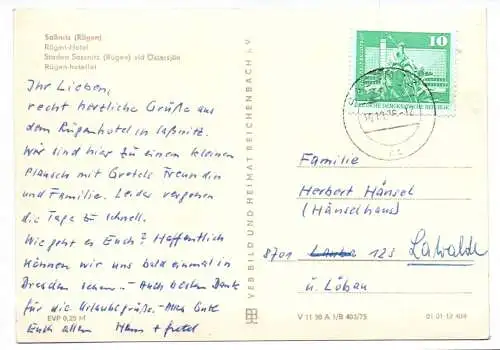 Saßnitz (Rügen)
Rügen-Hotel
Staden Sassnitz (Rügen) vid Östersjön
Rügen-hotellet
Ihr Lieben,
recht herzliche Grüße aus
dem Rügenhotel in Saßnitz.
Wir sind hier zu einem kleinen
Plausch mit Gretels Freundin
und Familie. Leider vergehen
die Tage zu schnell.
Wie geht es Euch? Hoffentlich
können wir uns bald einmal in
Dresden sehen. - Auch besten Dank
für die Urlaubsgrüße. - Alles Gute
Euch allen Hans + Gretel
EVP 0,25 M
VEB BILD UND HEIMAT REICHENBACH i. V.
10
DEUTSCHE DEMOKRATISCHE REPUBLIK
Familie
Herbert Hänsel
(Hänselhaus)
8701 123 Lawalde
ü. Löbau
V 11 50 A 1/B 403/75
01 01 13 404